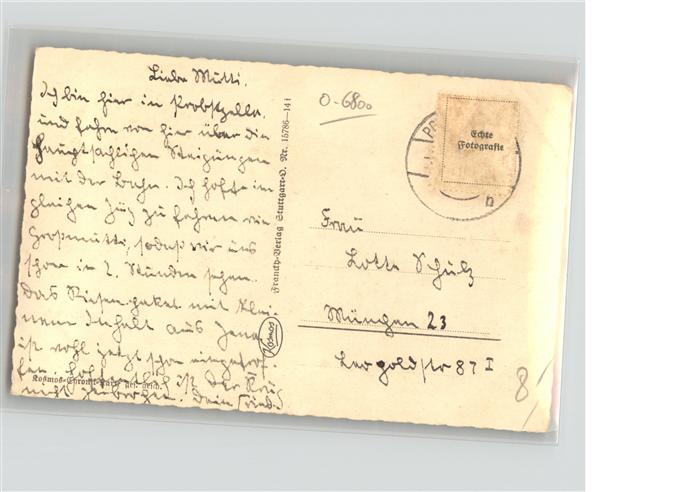 Liebe Mutti.
Ich bin hier in Probstzella
und fahre von hier über die
hauptsächlichen Steigungen
mit der Bahn. Ich hoffe im
gleichen Zug zu fahren wie
Großmutti, sodaß wir uns
schon in 2 Stunden sehen.
Das Riesenpaket mit klei-
nem Inhalt aus Jena
ist wohl jetzt schon eingetrof-
fen. Hoffentlich ist der
nicht zerbrochen. Dein
Kosmos
Franckh-Verlag Stuttgart-O. Nr. 15786—14 i
0-6800
Echte
Fotografie
n
Frau
Lotte Schulz
München 23
Leopoldstr 87 I
8/